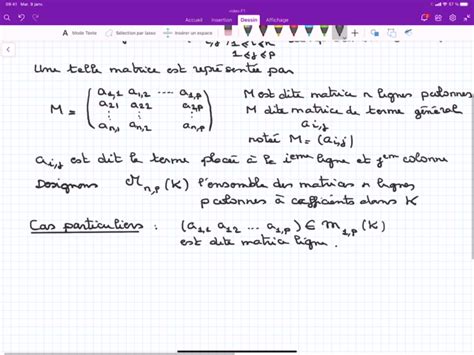 09:41 Mar. 9 janv.
video F1
Accueil Insertion Dessin Affichage
A Mode Texte Sélection par lasso Insérer un espace
1≤i≤n
1≤j≤p
Une telle matrice est représentée par
M = ( a1,1 a1,2 ..... a1,p
a2,1 a22 a2,p
⋮ ⋮ ⋮
an,1 an,2 an,p )
M est dite matrice n lignes p colonnes
M dite matrice de terme général
ai,j
notée M = (ai,j)
ai,j est dit le terme placé à la ieme ligne et jem colonne
Designons Mn,p (K) l'ensemble des matrices n lignes
p colonnes à coefficients dans K
Cas particuliers : (a1,1 a12 ... a1,p) ∈ M1,p (K)
est dite matrice ligne.